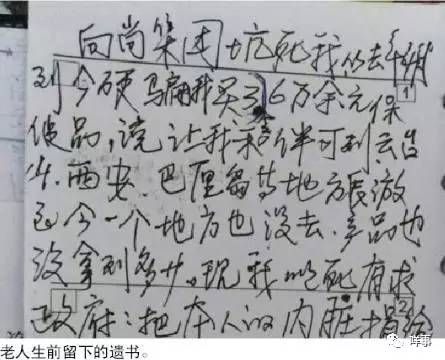 向尚集团坑死我的去年
到今硬骗我买了6万余元保
健品,说让我和老伴可到云台
山、西安、巴厘岛等地方旅游
至今一个地方也没去、产品也
没拿到多少。现我以死有求
政府:把本人的内脏捐给
1
2
老人生前留下的遗书。
咩事